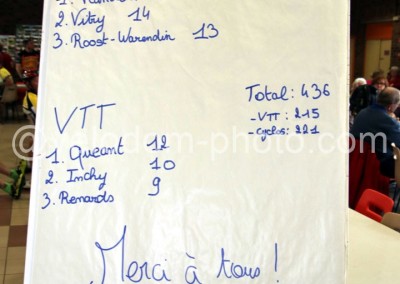 2. Vitry 14
3. Roost-Warendin 13
VTT
1. Queant 12
2. Inchy 10
3. Renards 9
Total: 436
- VTT : 215
- Cyclos: 221
Merci à tous !